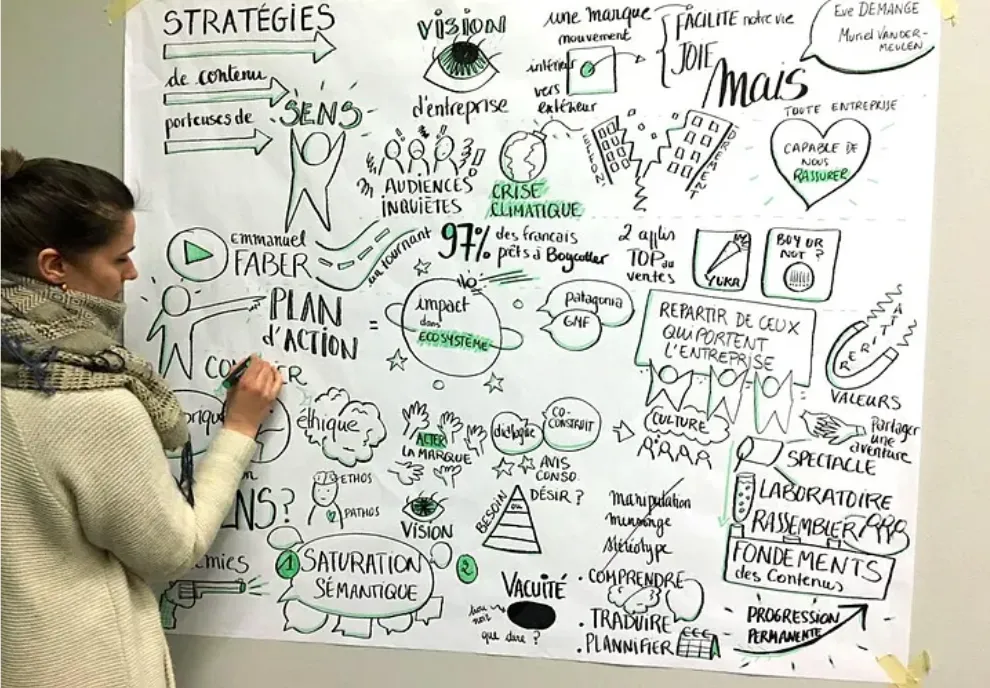 STRATÉGIES
de contenu
porteuses de
SENS
VISION
d'entreprise
une marque
mouvement
intérieur
vers
extérieur
FACILITE notre vie
JOIE
Mais
Eve DEMANGE
Muriel VANDER-
MEULEN
TOUTE ENTREPRISE
CAPABLE DE
NOUS
RASSURER
AUDIENCES
INQUIÈTES
CRISE
CLIMATIQUE
EFFON
DREMENT
Emmanuel
FABER
un tournant
97% des francais
prêts à Boycotter
2 applis
TOP du
ventes
YUKA
BUY OR
NOT?
PLAN
d'ACTION
=
impact
dans
ECOSYSTÈME
patagonia
GMF
REPARTIR DE CEUX
QUI PORTENT
L'ENTREPRISE
VALEURS
éthique
ACTER
LA MARQUE
dialogue
CO-
CONSTRUIT
AVIS
CONSO.
CULTURE
Partager
une
aventure
SPECTACLE
LABORATOIRE
RASSEMBLER
FONDEMENTS
des Contenus
PROGRESSION
PERMANENTE
ENS?
ETHOS
PATHOS
VISION
BESOIN
OU
DÉSIR?
manipulation
mensonge
stéréotype
• COMPRENDRE
• TRADUIRE
• PLANNIFIER
1 SATURATION
SÉMANTIQUE
2
VACUITÉ
trou
noir
que dire?